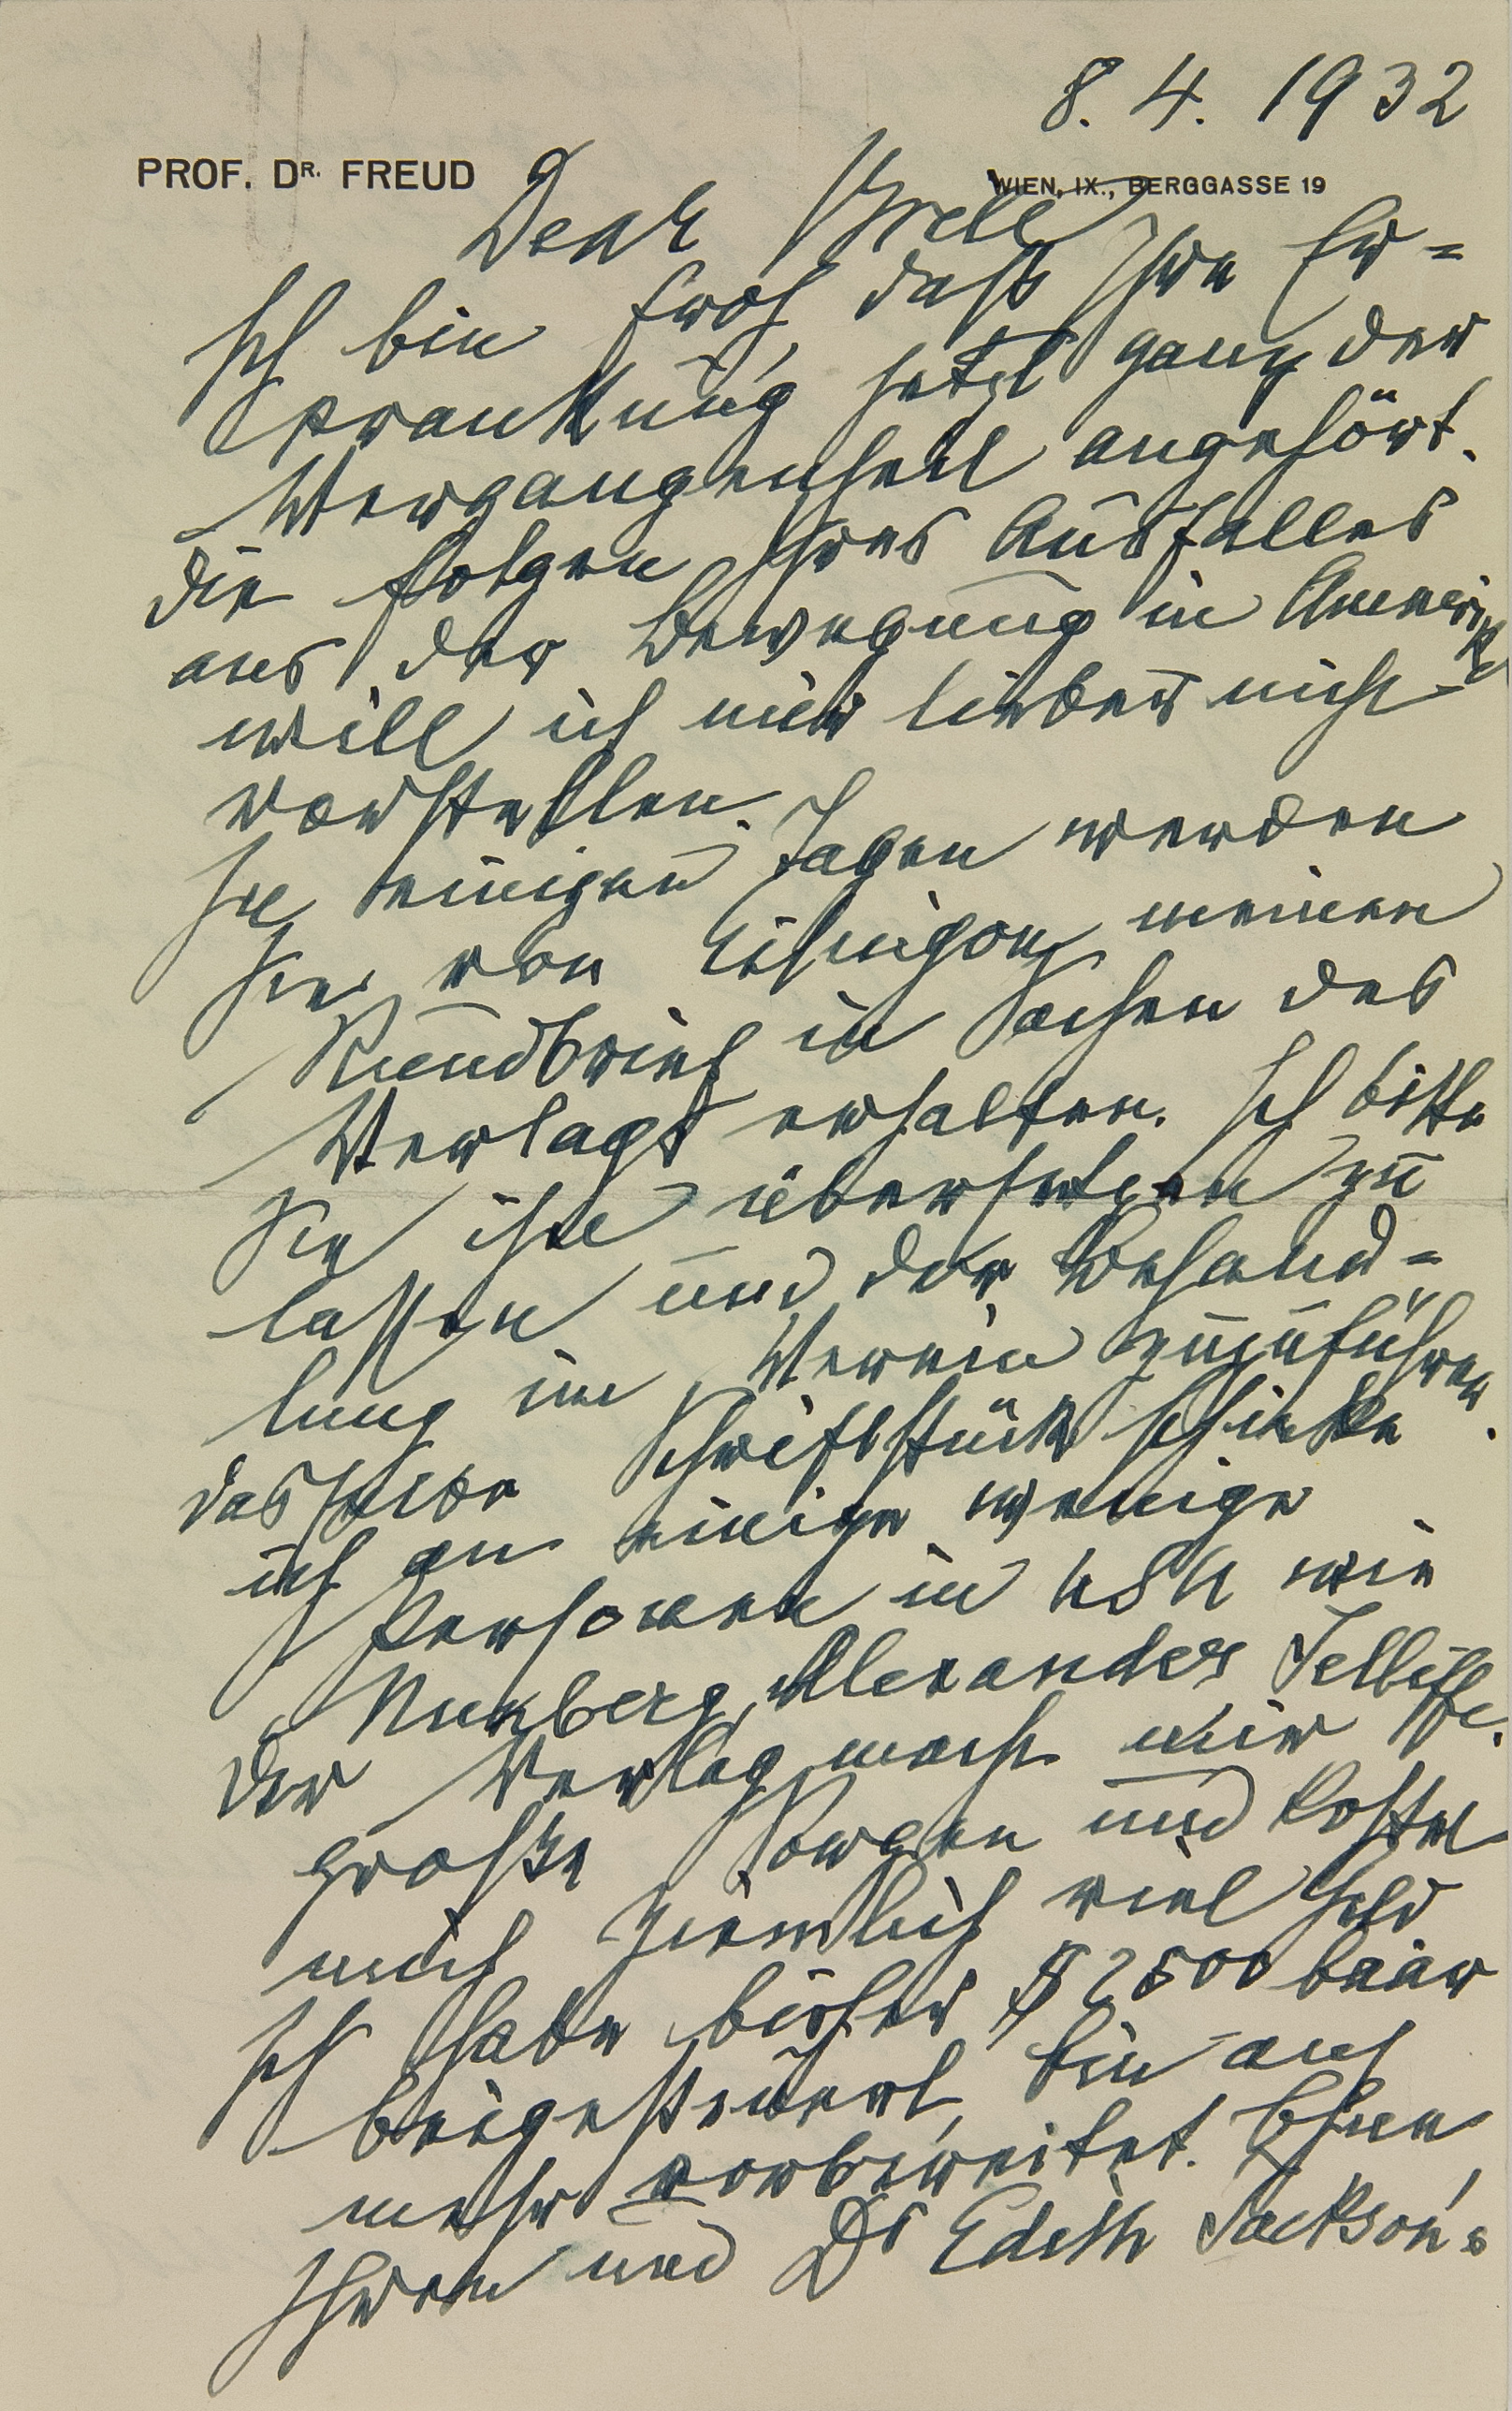 8. 4. 1932
PROF. DR. FREUD
WIEN, IX., BERGGASSE 19
Dear Brill
Ich bin froh, daß Ihre Er=
krankung jetzt ganz der
Vergangenheit angehört.
Die Folgen Ihres Ausfalles
aus der Bewegung in Amerika
will ich mir lieber nicht
vorstellen.
In einigen Tagen werden
Sie von Eitingon meinen
Rundbrief in Sachen des
Verlags erhalten. Ich bitte
Sie ihn übersetzen zu
lassen und der Behand=
lung im Verein zuzuführen.
Dasselbe Schriftstück schicke
ich an einige wenige
Personen in USA wie
Nunberg, Alexander Jelliffe.
Der Verlag macht mir
große Sorgen und kostet
mich ziemlich viel Geld
Ich habe bisher $ 2500 baar
beigesteuert, bin auf
mehr vorbereitet. Ohne
Ihren und Dr Edith Jackson's